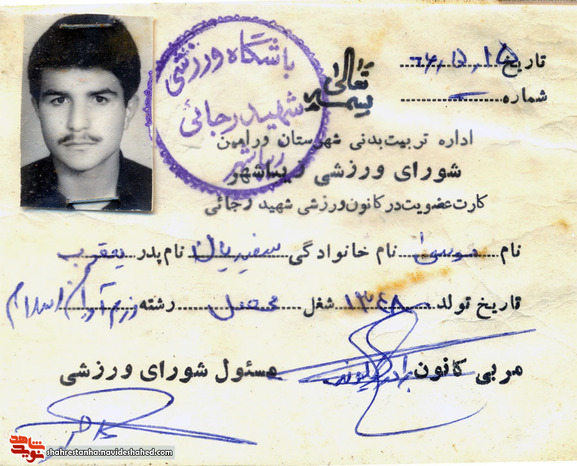 بسمه تعالی
تاریخ ۶۴,۵,۱۵
شماره
اداره تربیت‌بدنی شهرستان ورامین
شورای ورزشی زیباشهر
کارت عضویت در کانون ورزشی شهید رجائی
نام موسی نام خانوادگی سفیریان نام پدر یعقوب
تاریخ تولد ۱۳۴۸ شغل محصل رشته رزم آوران اسلام
مربی کانون مسئول شورای ورزشی
باشگاه ورزشی
شهید رجائی
زیباشهر
نوید شاهد
shahrestanha.navideshahed.com